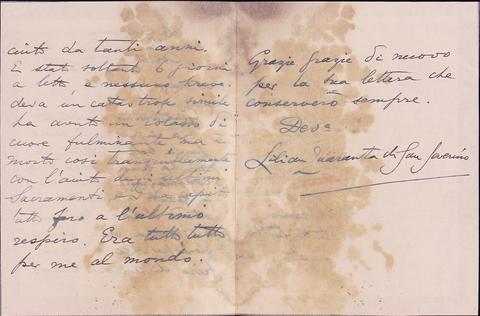 ciuto da tanti anni.
È stato soltanto 6 giorni
a letto e nessuno preve-
deva un catastrofe simile
ha avuto un
cuore fulminante ma è
morto così tranquillamente
con l'aiuto degli ultimi
Sacramenti e ha capito
tutto fino a l'ultimo
respiro. Era tutto tutto
per me al mondo.
Grazie grazie di nuovo
per la sua lettera che
conserverò sempre.
Dev^a
Lilian Quaranta di San Severino